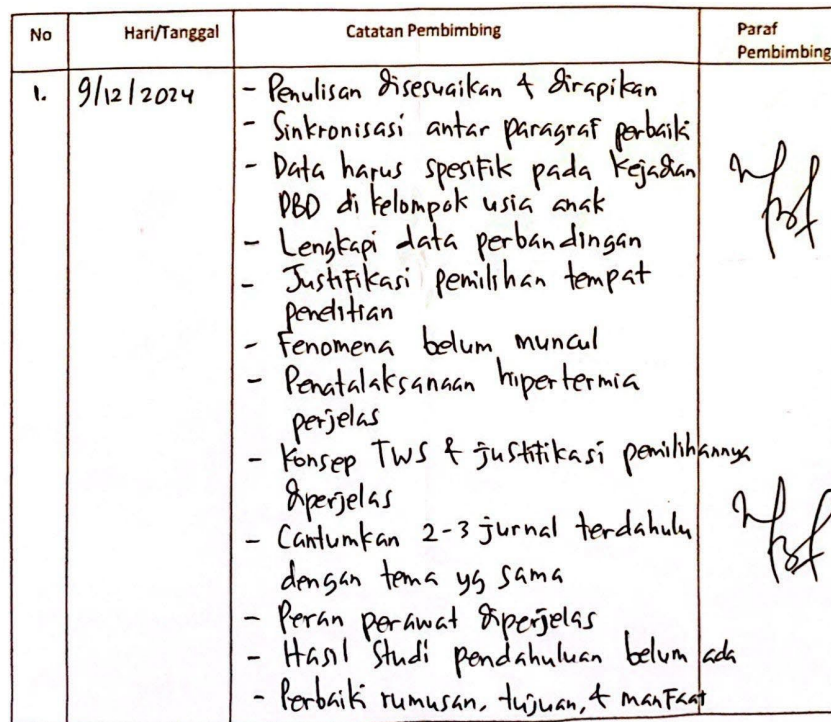 No Hari/Tanggal Catatan Pembimbing Paraf
Pembimbing
1. 9/12/2024 - Penulisan disesuaikan & dirapikan
- Sinkronisasi antar paragraf perbaiki
- Data harus spesifik pada kejadian
DBD di kelompok usia anak
- Lengkapi data perbandingan
- Justifikasi pemilihan tempat
penelitian
- Fenomena belum muncul
- Penatalaksanaan hipertermia
perjelas
- Konsep TWS & justifikasi pemilihannya
diperjelas
- Cantumkan 2-3 jurnal terdahulu
dengan tema yg sama
- Peran perawat diperjelas
- Hasil Studi pendahuluan belum ada
- Perbaiki rumusan, tujuan, & manfaat